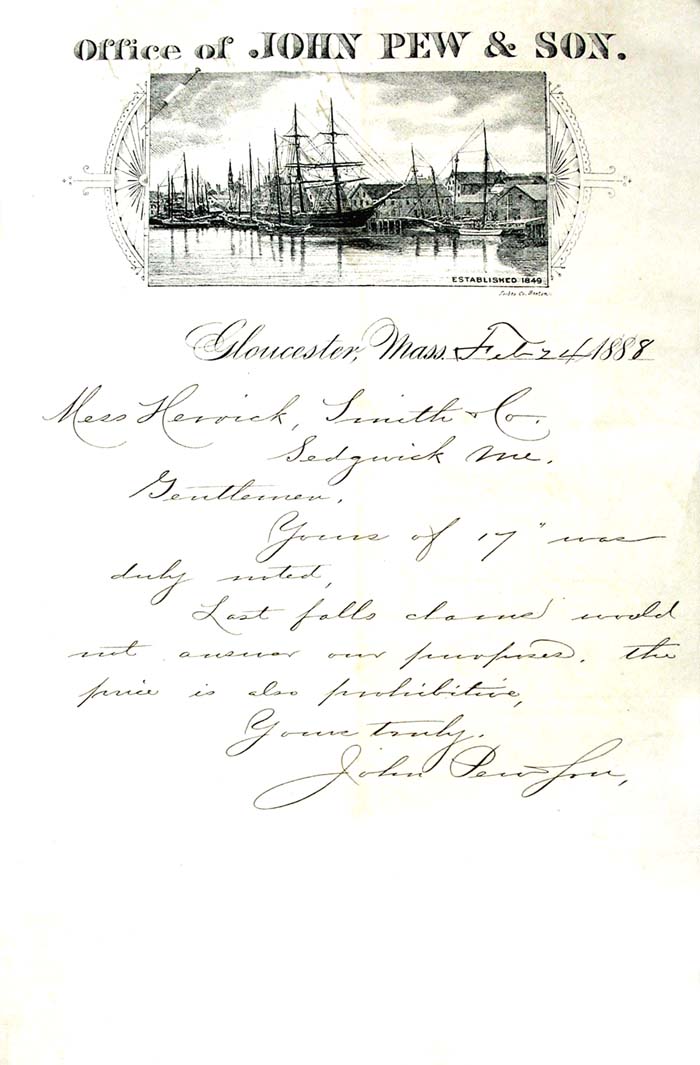 Office of JOHN PEW & SON.
ESTABLISHED 1849
Forbes Co. Boston
Gloucester, Mass. Feb 24 1888
Mess Herrick, Smith & Co.
Sedgwick Me.
Gentlemen,
Yours of 17" was
duly noted,
Last falls clams would
not answer our purposes, the
price is also prohibitive,
Yours truly,
John Pew & Son,